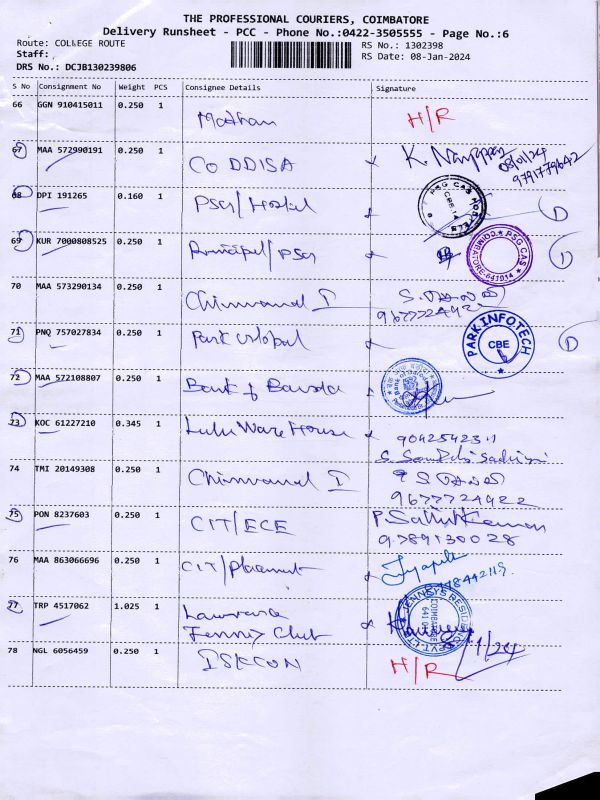 THE PROFESSIONAL COURIERS, COIMBATORE
Delivery Runsheet - PCC - Phone No.:0422-3505555 - Page No.:6
Route: COLLEGE ROUTE
RS No.: 1302398
Staff:
RS Date: 08-Jan-2024
DRS No.: DCJB130239806
S No Consignment No Weight PCS Consignee Details Signature
66 GGN 910415011 0.250 1 Mathan H/R
67 MAA 572990191 0.250 1 CO DDISA K. 08/01/24
9791779642
68 DPI 191265 0.160 1 PSG/Hostel PSG CAS HOSTEL CBE-14
69 KUR 7000808525 0.250 1 Principal/PSG PSG CAS COIMBATORE-641014
70 MAA 573290134 0.250 1 Chinvanand I S.
9677724922
71 PNQ 757027834 0.250 1 Park Global PARK INFOTECH CBE
72 MAA 572108807 0.250 1 Bank of Baroda
73 KOC 61227210 0.345 1 Lulu Ware House
74 TMI 20149308 0.250 1 Chinvanand I S.
9677724922
75 PON 8237603 0.250 1 CIT/ECE P.
9789130028
76 MAA 863066696 0.250 1 CIT/Placement
77 TRP 4517062 1.025 1 Lawrance
Jennys Club JENNSYS RESIDENCY PVT. LTD COIMBATORE 641 0
78 NGL 6056459 0.250 1 ISKCON H/R